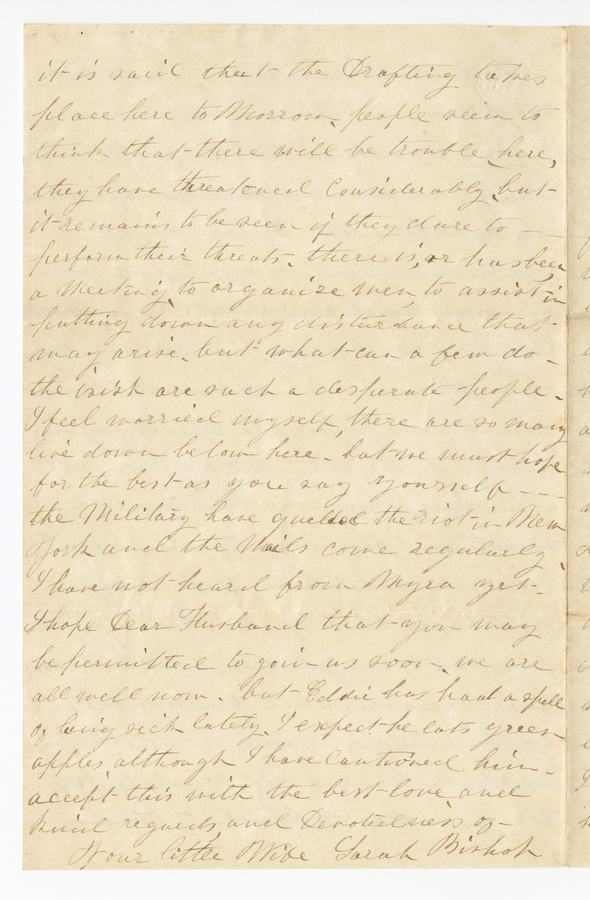 it is said that the Drafting takes
place here to Morrow, people seem to
think that there will be trouble here,
they have threatened Considerably, but
it remains to be seen if they dare to
perform their threats. there is, or has been
a Meeting, to organize men, to assist in
putting down any disturbance that
may arise, but what can a few do -
the irish are such a desperate people -
I feel worried myself, there are so many
live down below here - but we must hope
for the best as you say yourself - - -
the Military have quelled the riot in New
York and the Mails come regularly,
I have not heard from Myra yet -
I hope Dear Husband that you may
be permitted to join us soon, we are
all well now. but Eddie has had a spell
of being sick lately, I expect he eats green
apples although I have Cautioned him -
accept this with the best love and
kind regards, and Devotedness of -
Your little Wife Sarah Bishop